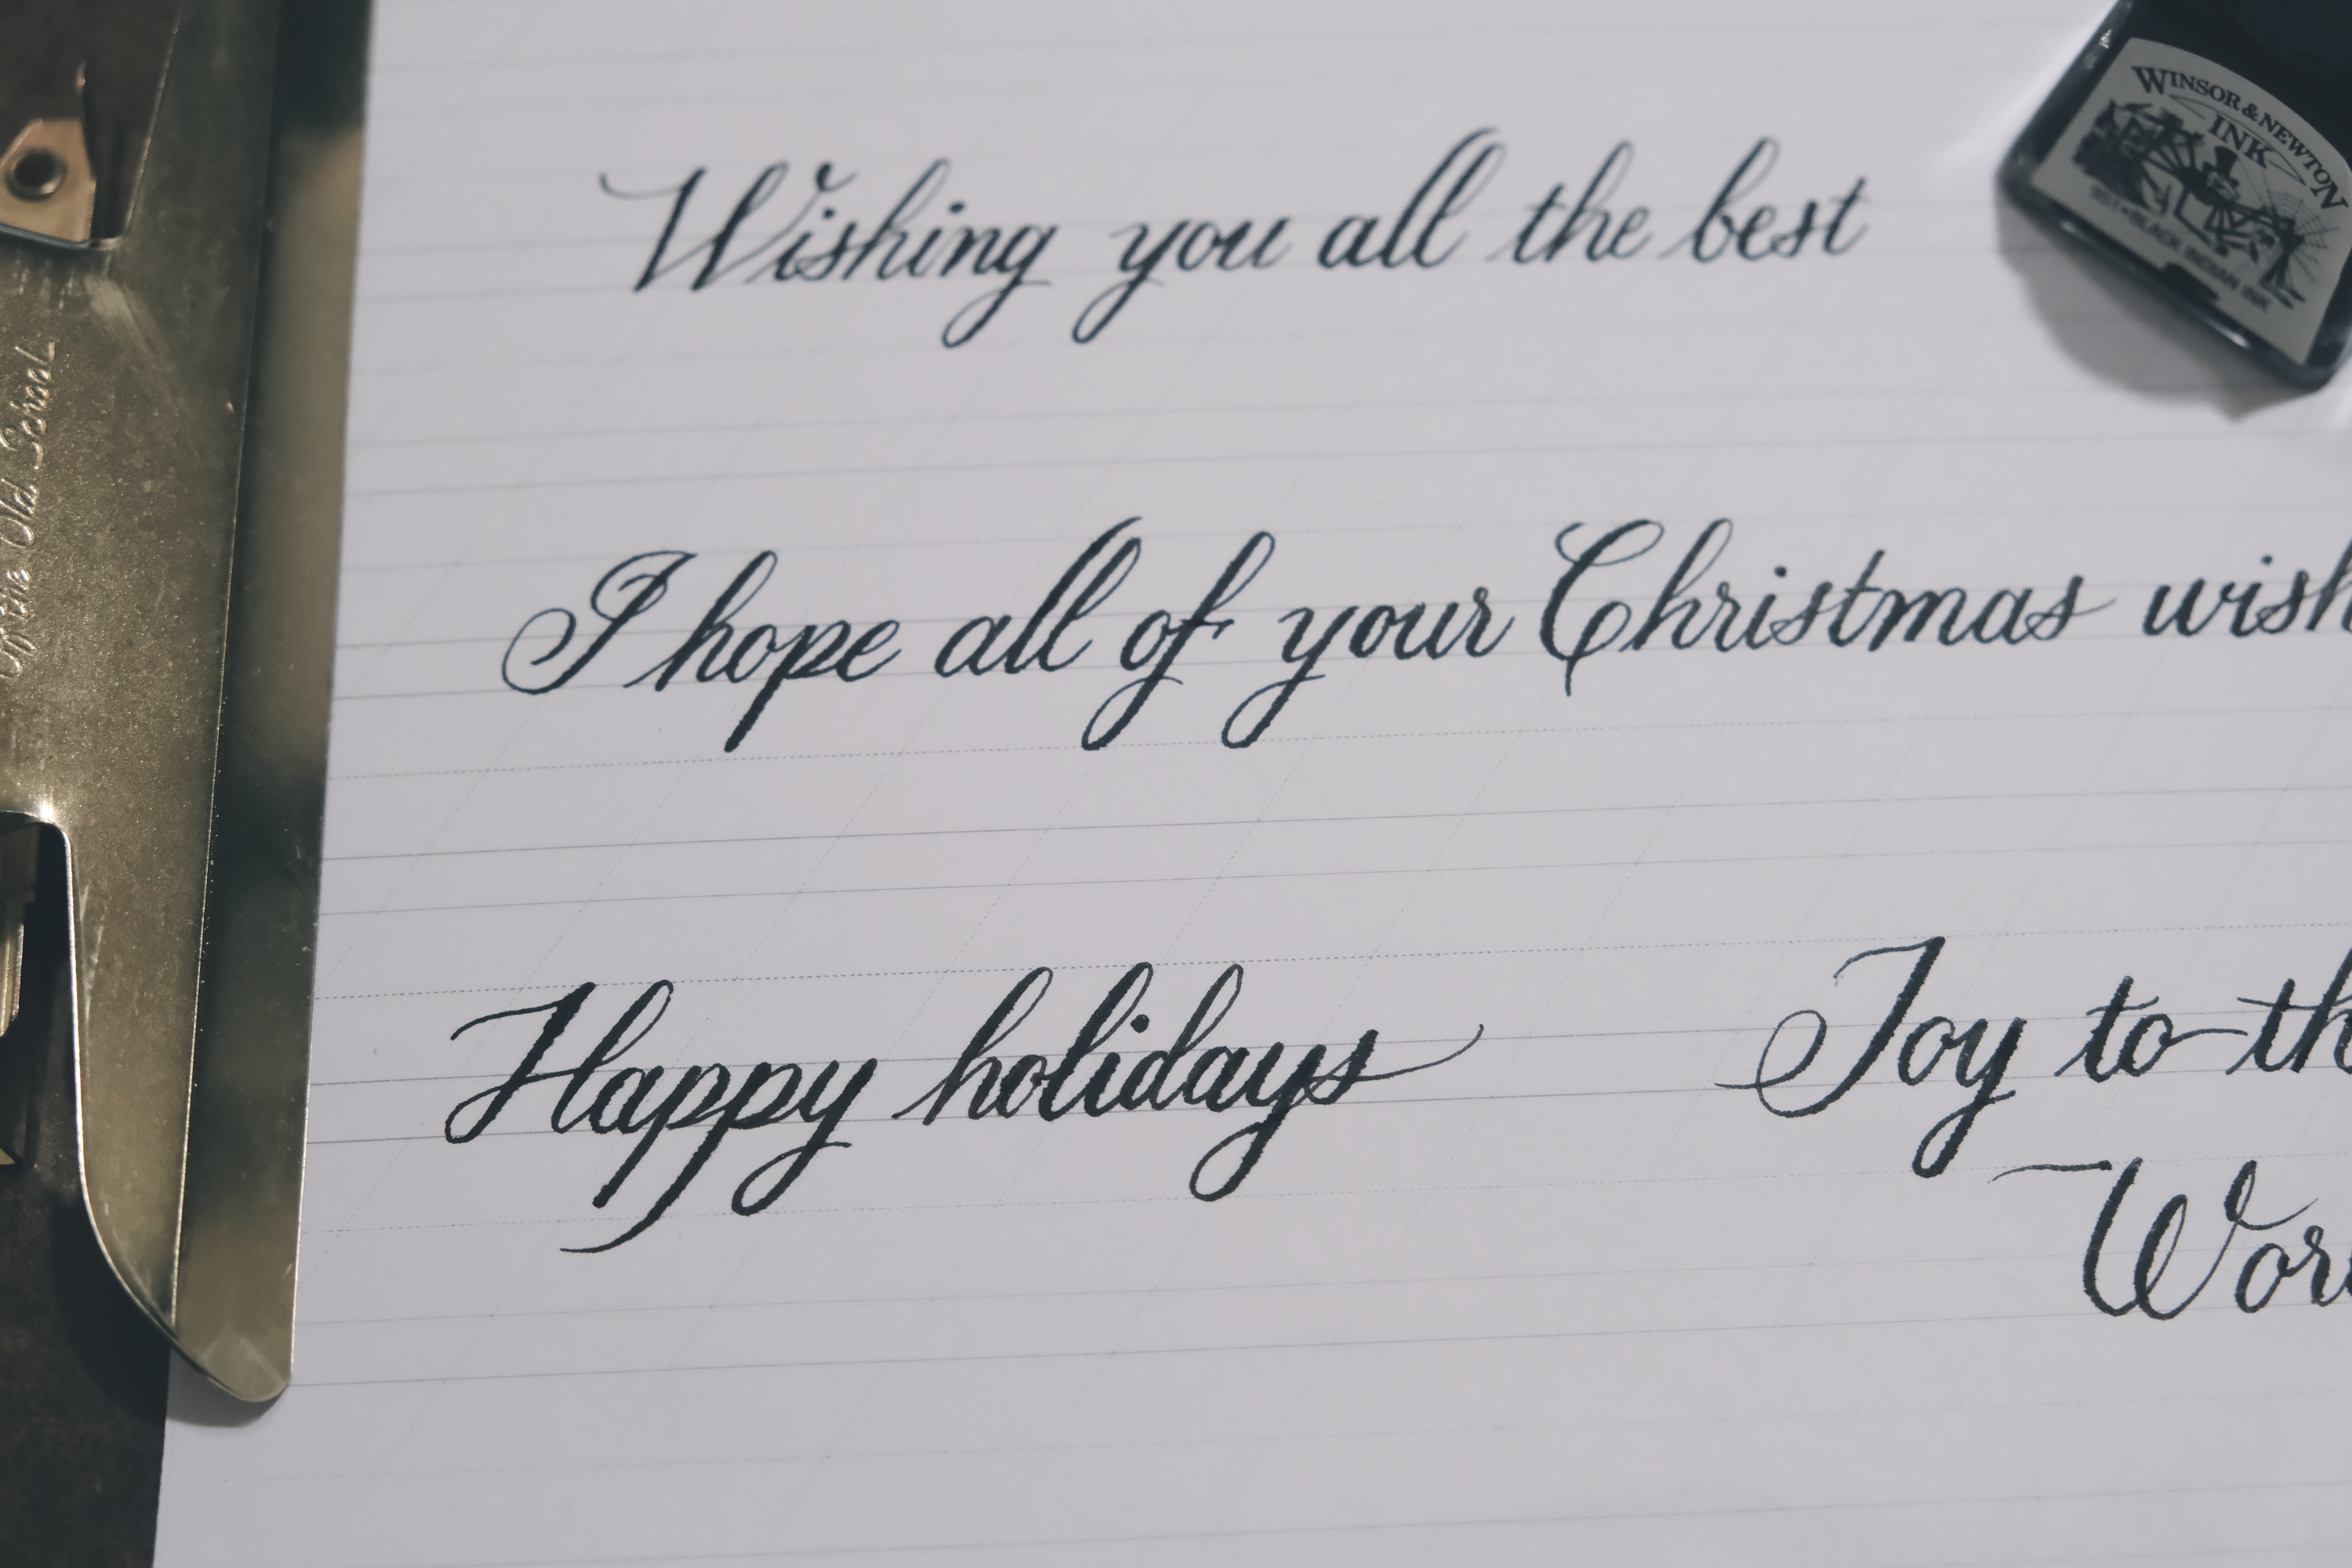 WINSOR & NEWTON
INK
Wishing you all the best
BLACK INDIAN INK
Old School
I hope all of your Christmas wish
Happy holidays
Joy to th
Wor